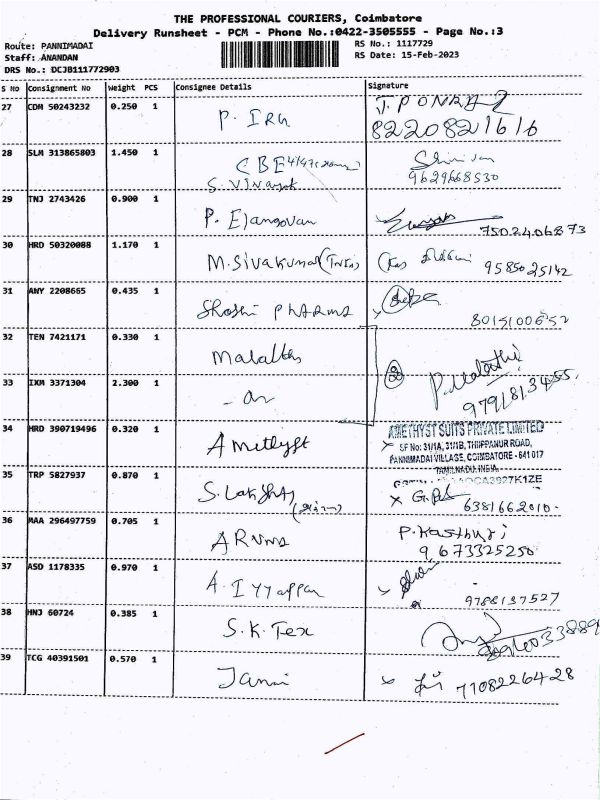 THE PROFESSIONAL COURIERS, Coimbatore
Delivery Runsheet - PCM - Phone No.:0422-3505555 - Page No.:3
Route: PANNIMADAI RS No.: 1117729
Staff: ANANDAN RS Date: 15-Feb-2023
DRS No.: DCJB111772903
S No Consignment No Weight PCS Consignee Details Signature
27 CDM 50243232 0.250 1 P. IRU J. PONRAJ
8220821616
28 SLM 313865803 1.450 1 CBE
S. Vinayak 9629668530
29 TNJ 2743426 0.900 1 P. Elangovan 7502406873
30 HRD 50320088 1.170 1 M. Sivakumar 9585025142
31 ANY 2208665 0.435 1 Shoshi Pharma 8015100652
32 TEN 7421171 0.330 1 Malathi P. Malathi
33 IXM 3371304 2.300 1 2
34 HRD 390719496 0.320 1 Amethyst AMETHYST SUITS PRIVATE LIMITED
SF No: 31/1A, 31/1B, THIPPANUR ROAD,
PANNIMADAI VILLAGE, COIMBATORE - 641 017
TAMILNADU, INDIA.
35 TRP 5827937 0.870 1 6381662010
36 MAA 296497759 0.705 1 P. Kasthuri
9673325250
37 ASD 1178335 0.970 1 A. Iyyappan 9788137527
38 HNJ 60724 0.385 1 S.K. Tex
39 TCG 40391501 0.570 1 7108226428